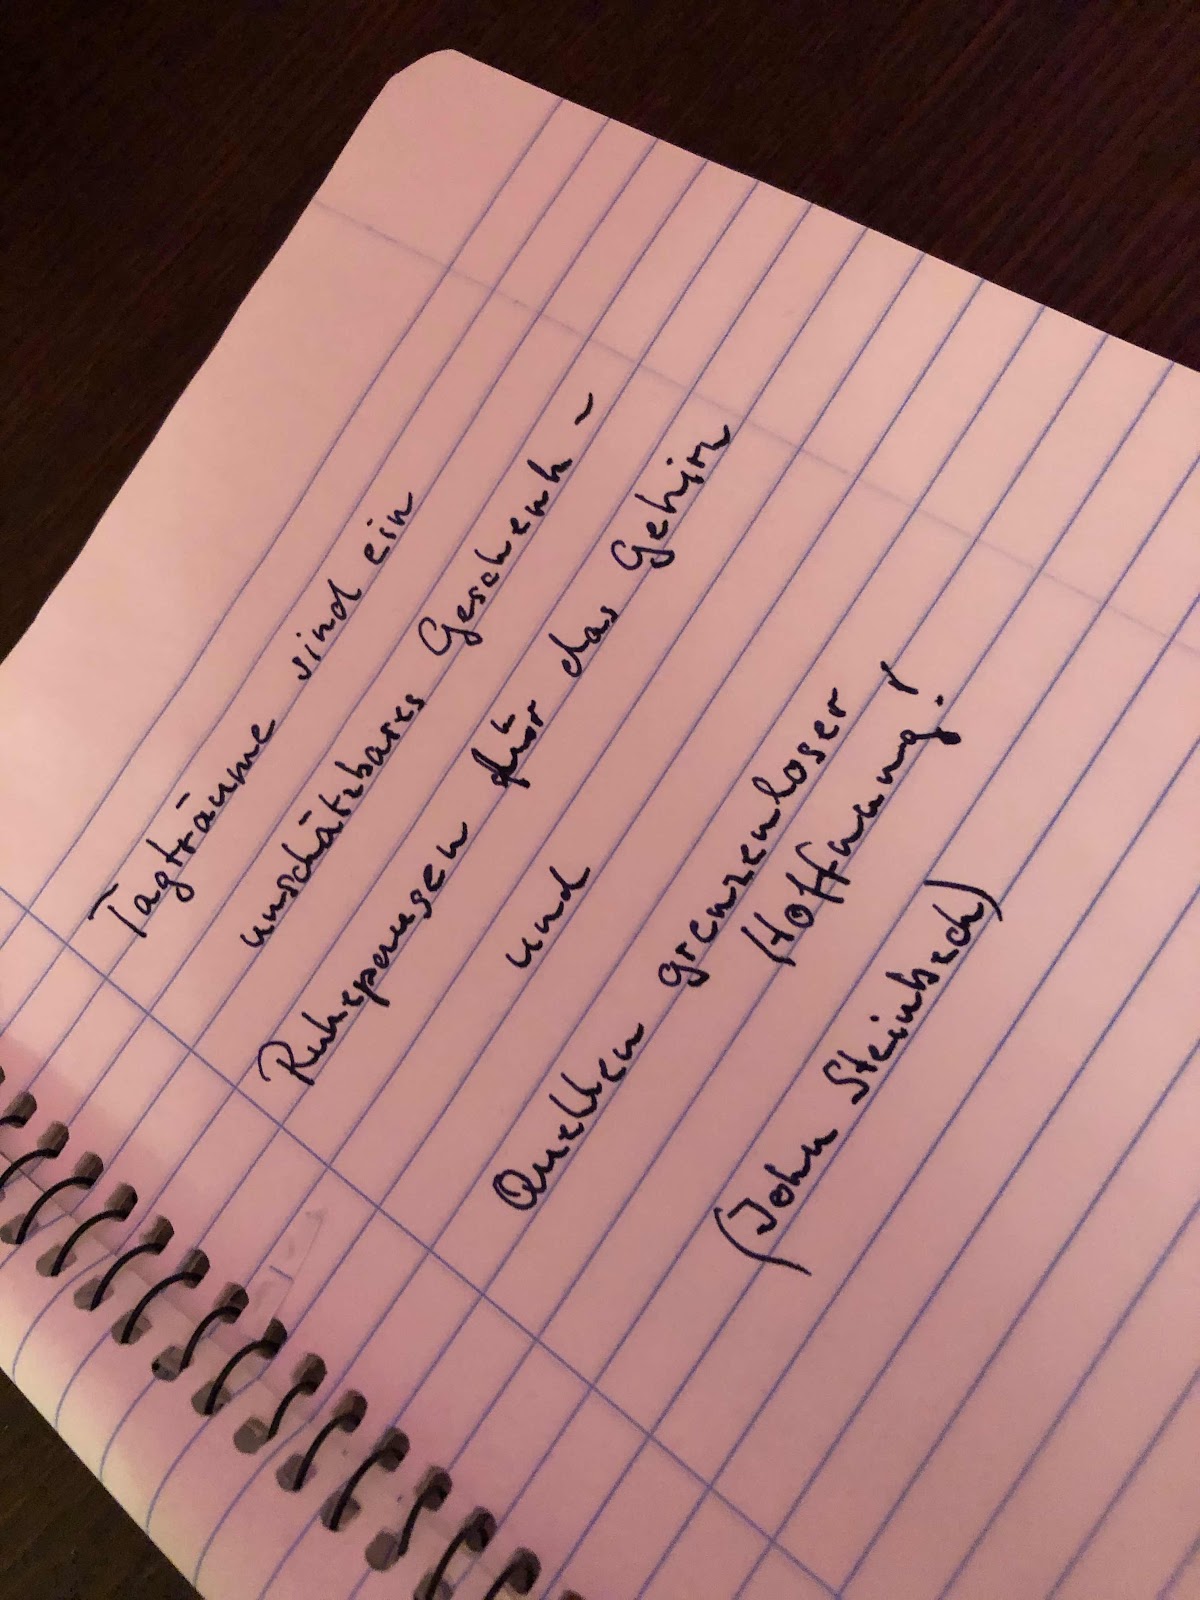 Tagträume sind ein
unschätzbares Geschenk -
Ruhepausen für das Gehirn
und
Quellen grenzenloser
Hoffnung!
(John Steinbeck)